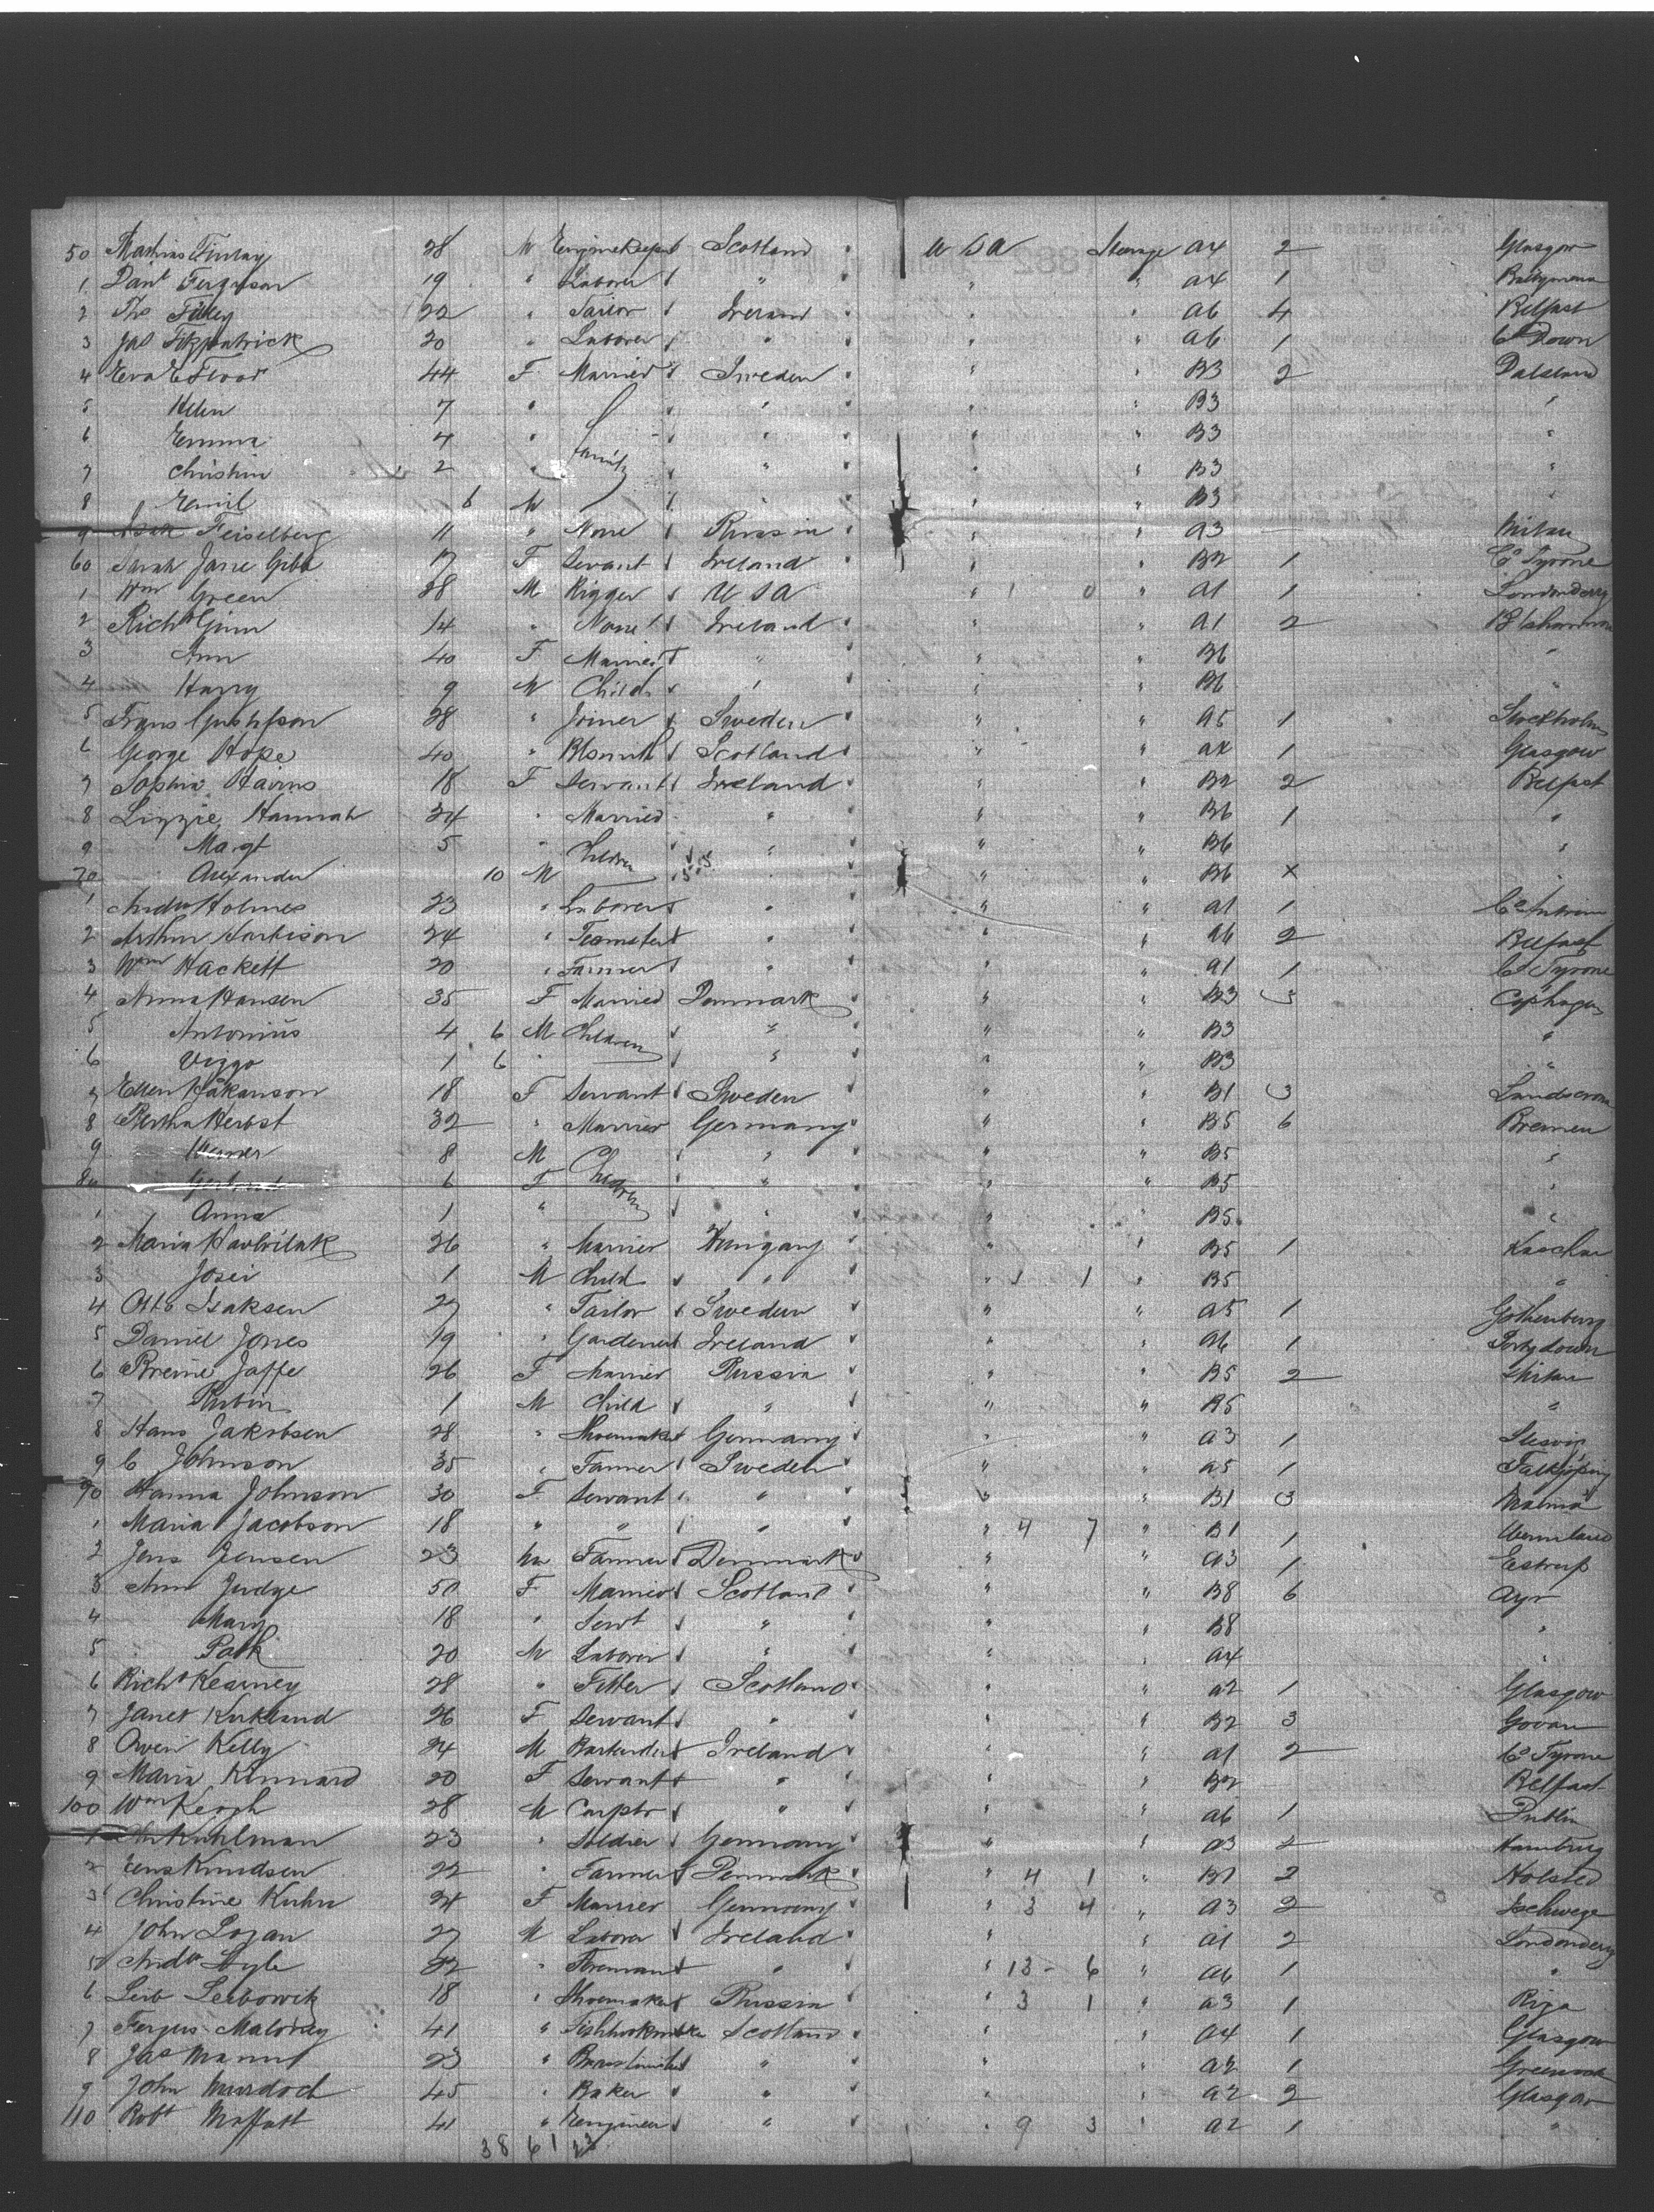 50 Mathias Finlay 28 M Enginekeeper Scotland USA Steerage A4 2 Glasgow
1 Danl Ferguson 19 " Laborer " " " A4 1
2 Tho 22 " Tailor Ireland " " A6 4 Belfast
3 Jas Fitzpatrick 20 " Laborer " " " A6 1 Co Down
4 Eva E Floor 44 F Married Sweden " " B3 2 Dalsland
5 Helen 7 " Family " " " B3 "
6 Emma 4 " " " " B3 "
7 Christin 2 " " " " B3 "
8 Emil 6 M " " B3 "
9 Feiselberg 11 " None Russia " " A3 Mitau
60 Sarah Jane Gibb 17 F Servant Ireland " " B2 1 Co Tyrone
1 Wm Green 28 M Rigger USA " 1 0 " A1 1 Londonderry
2 Richd Ginn 14 " None Ireland " " A1 2
3 Ann 40 F Married " " " B6 "
4 Harry 9 M Child " " " B6 "
5 Frans Gustafson 28 " Joiner Sweden " " A5 1 Stockholm
6 George Hope 40 " Blsmith Scotland " " A4 1 Glasgow
7 Sophia Hairns 18 F Servant Ireland " " B2 2 Belfast
8 Lizzie Hannah 24 " Married " " " B6 1 "
9 Margt 5 " Children " " " B6 "
70 Alexander 10 M " " B6 x "
1 Andw Holmes 23 " Laborer " " " A1 1 Co Antrim
2 Arthur Harbison 24 " Teamster " " " A6 2 Belfast
3 Wm Hackett 20 " Farmer " " " A1 1 Co Tyrone
4 Anna Hansen 35 F Married Denmark " " B3 3 Cophagen
5 Antonius 4 6 M Children " " " B3 "
6 Viggo 1 6 " " " " B3 "
7 Ellen Håkanson 18 F Servant Sweden " " B1 3 Landscrona
8 Bertha Herbst 32 " Married Germany " " B5 6 Bremen
9 Werner 8 M Children " " " B5 "
80 Gertrud 6 F " " " B5 "
1 Anna 1 " " " " B5 "
2 Maria 26 " Married Hungary " " B5 1 Kaschau
3 Josei 1 M Child " " 3 1 " B5 "
4 Otto Isaksen 27 " Tailor Sweden " " A5 1 Gothenburg
5 Daniel Jones 19 " Gardener Ireland " " A6 1 Portydown
6 Breine Jaffe 26 F Married Russia " " B5 2
7 Rubin 1 M Child " " " B5 "
8 Hans Jakobsen 28 " Shoemaker Germany " " A3 1 Slesvig
9 C Johnson 35 " Farmer Sweden " " A5 1 Falkjöping
90 Hanna Johnson 30 F Servant " " " B1 3 Malmö
1 Maria Jacobson 18 " " " " 4 7 " B1 1 Wermland
2 Jens Jensen 23 M Farmer Denmark " " A3 1 Estrup
3 Ann Judge 50 F Married Scotland " " B8 6 Ayr
4 Mary 18 " Servt " " " B8 "
5 Patk 20 M Laborer " " A4 "
6 Richd Kearney 28 " Fitter Scotland " " A2 1 Glasgow
7 Janet Kirkland 26 F Servant " " " B2 3 Govan
8 Owen Kelly 24 M Bartender Ireland " " A1 2 Co Tyrone
9 Maria Kennard 20 F Servant " " " B2 Belfast
100 Wm Keogh 28 M Carptr " " " A6 1 Dublin
1 Kuhlman 23 " Soldier Germany " " A3 2 Hamburg
2 Jens Knudsen 22 " Farmer Denmark " 4 1 " B1 2 Holsted
3 Christine Kuhn 24 F Married Germany " 3 4 " A3 2 Eschwege
4 John Logan 27 M Laborer Ireland " " A1 2 Londonderry
5 Andw Lyle 22 " Fireman " " 13 - 6 " A6 1 "
6 Leib Leibowik 18 " Shoemaker Russia " 3 1 " A3 1 Riga
7 Fergus Maloney 41 " Fishhookmaker Scotland " " A4 1 Glasgow
8 Jas Mann 23 " " " " A2 1 Greenock
9 John Murdoch 45 " Baker " " " A2 2 Glasgow
110 Robt Moffatt 41 " Engineer " " 9 3 " A2 1 "
38 61 23